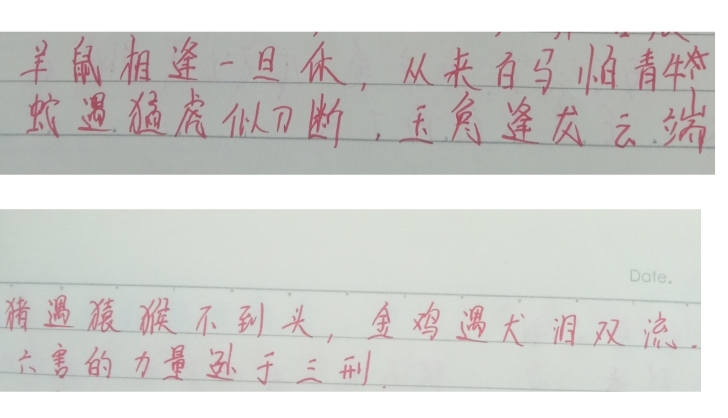 羊鼠相逢一旦休，从来白马怕青牛
蛇遇猛虎似刀断，玉兔逢龙云端
Date.
猪遇猿猴不到头，金鸡遇犬泪双流.
六害的力量逊于三刑